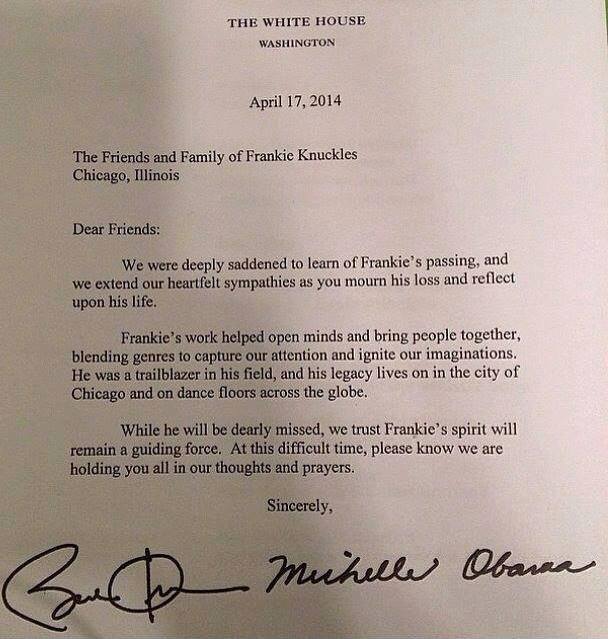 THE WHITE HOUSE
WASHINGTON
April 17, 2014
The Friends and Family of Frankie Knuckles
Chicago, Illinois
Dear Friends:
We were deeply saddened to learn of Frankie's passing, and
we extend our heartfelt sympathies as you mourn his loss and reflect
upon his life.
Frankie's work helped open minds and bring people together,
blending genres to capture our attention and ignite our imaginations.
He was a trailblazer in his field, and his legacy lives on in the city of
Chicago and on dance floors across the globe.
While he will be dearly missed, we trust Frankie's spirit will
remain a guiding force.  At this difficult time, please know we are
holding you all in our thoughts and prayers.
Sincerely,
Michelle Obama